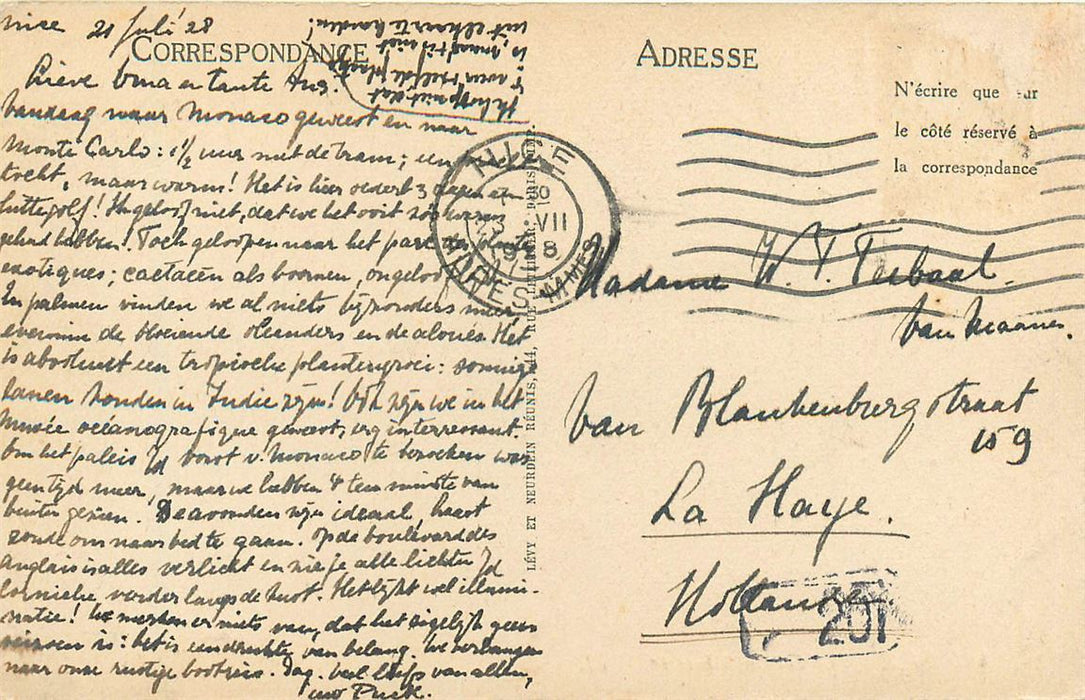 Nice 21 Juli '28
CORRESPONDANCE
Ik hoop niet dat
niet uit elkaar te houden!
Lieve Oma en tante
Vandaag naar Monaco geweest en naar
Monte Carlo: 1/2 uur met de tram; een
tocht, maar warm! Het is hier al 3 dagen een
hittegolf! Ik geloof niet, dat we het ooit zoo warm
gehad hebben! Toch geloopen naar het parc des plantes
exotiques; cactaeën als boomen, ongelooflijk
In palmen vinden we al niets bijzonders meer,
evenmin de bloeiende oleanders en de aloués. Het
is absoluut een tropische plantengroei: sommige
lanen konden in Indie zijn! Ook zijn we in het
Musée océanografique geweest, erg interressant.
Om het paleis v/d vorst v. Monaco te bezoeken was
geen tijd meer, maar we hebben 't ten minste van
buiten gezien. De avonden zijn ideaal, haast
zonde om naar bed te gaan. Op de boulevard des
anglais is alles verlicht en zie je alle lichten v/d
corniche, verder langs de kust. Het lijkt wel illumi-
natie! We merken er niets van, dat het eigelijk geen
seizoen is: het is een drukte van belang. We verlangen
naar onze rustige bootreis. Dag. Veel liefs van allen,
uw Puck.
LÉVY ET NEURDEIN RÉUNIS, 44, RUE LETELLIER, PARIS IMP.
NICE
23 VII
ALPES MMES
ADRESSE
N'écrire que sur
le côté réservé à
la correspondance
Madame W. T.
van Maanen.
van Blankenburgstraat
159
La Haye.
Hollande
201